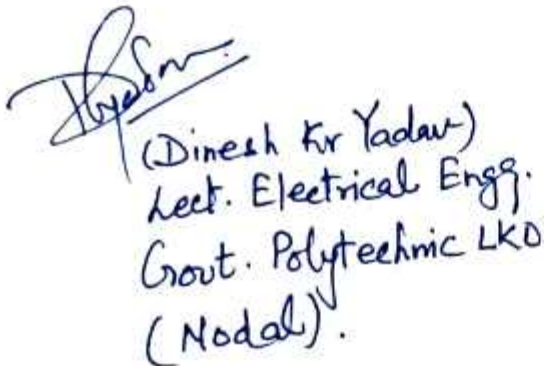 (Dinesh Kr Yadav)
Lect. Electrical Engg.
Govt. Polytechnic LKO
(Nodal).